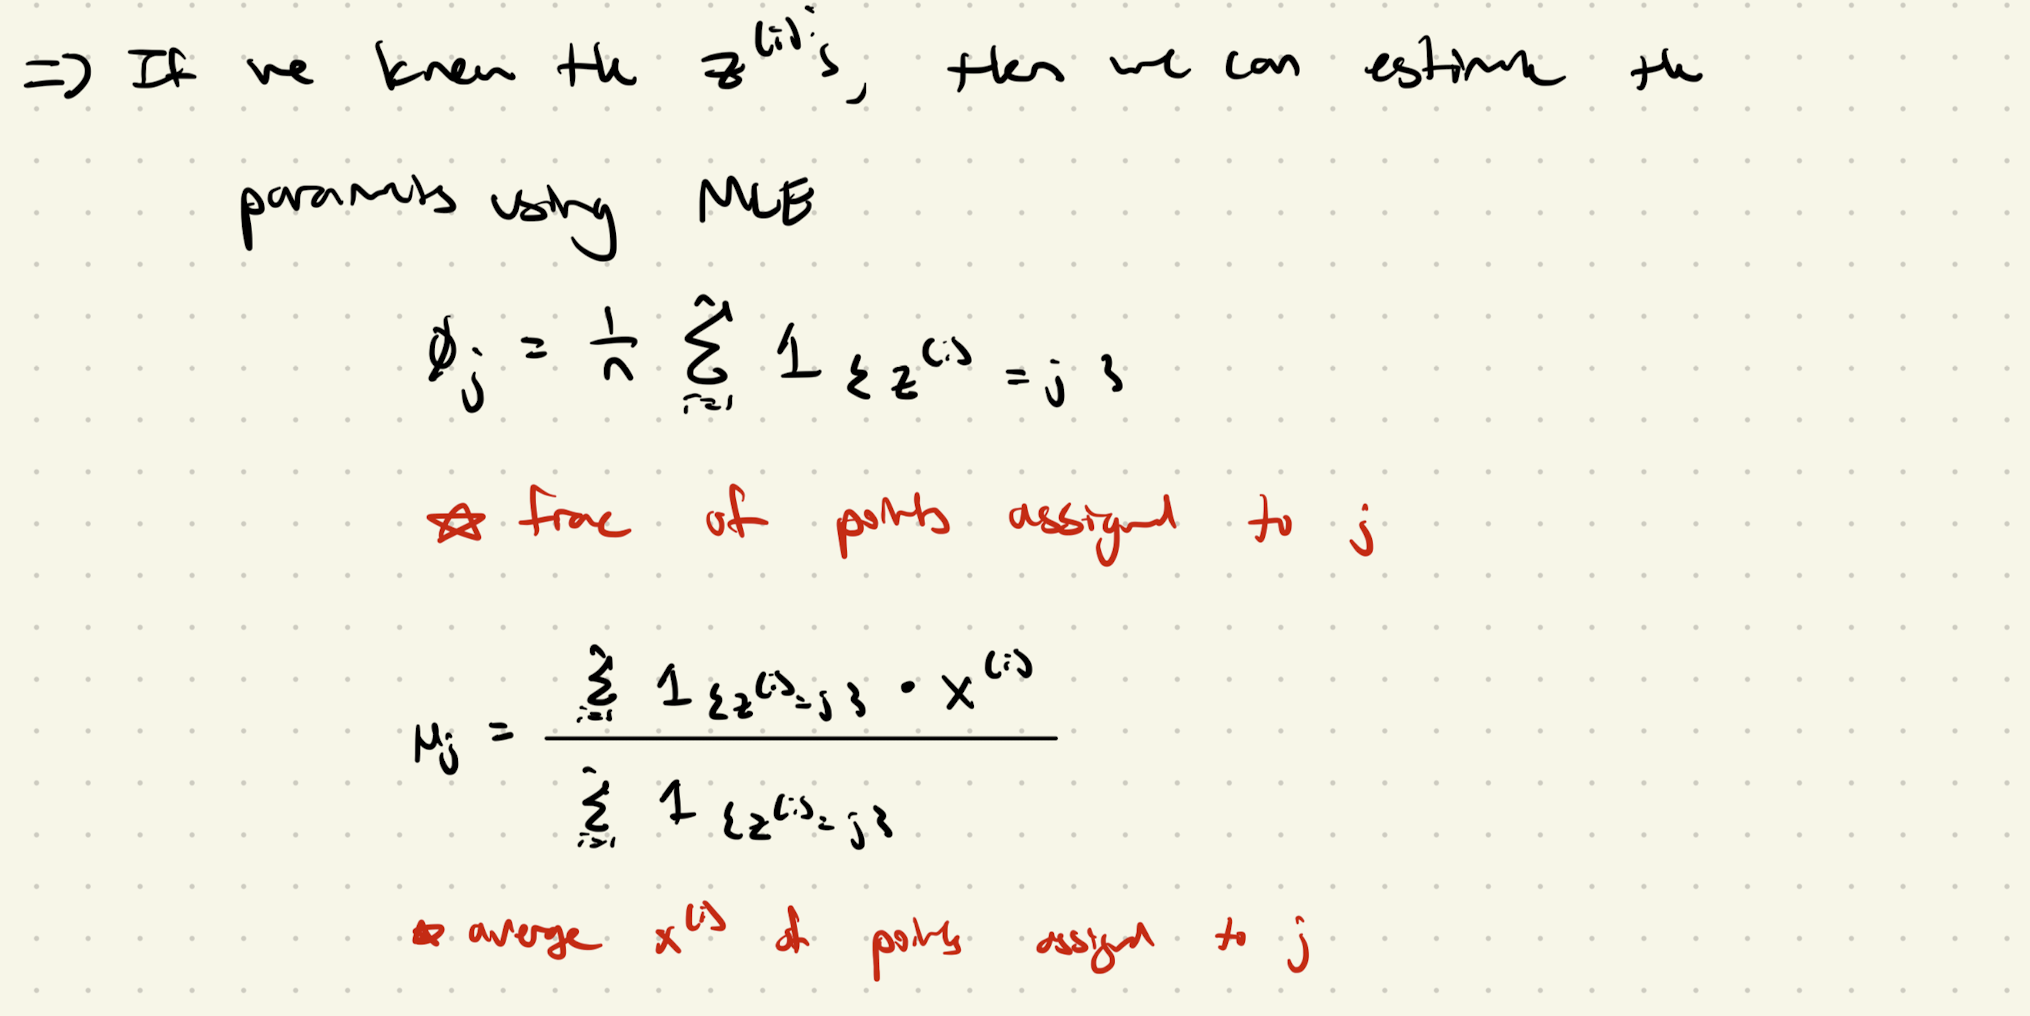 => If we knew the z^(i)'s, then we can estimate the
params using MLE
ϕ_j = 1/n ∑_{i=1}^n 1{z^(i) = j}
☆ frac of points assigned to j
μ_j = (∑_{i=1}^n 1{z^(i) = j} · x^(i)) / (∑_{i=1}^n 1{z^(i) = j})
☆ average x^(i) of points assigned to j